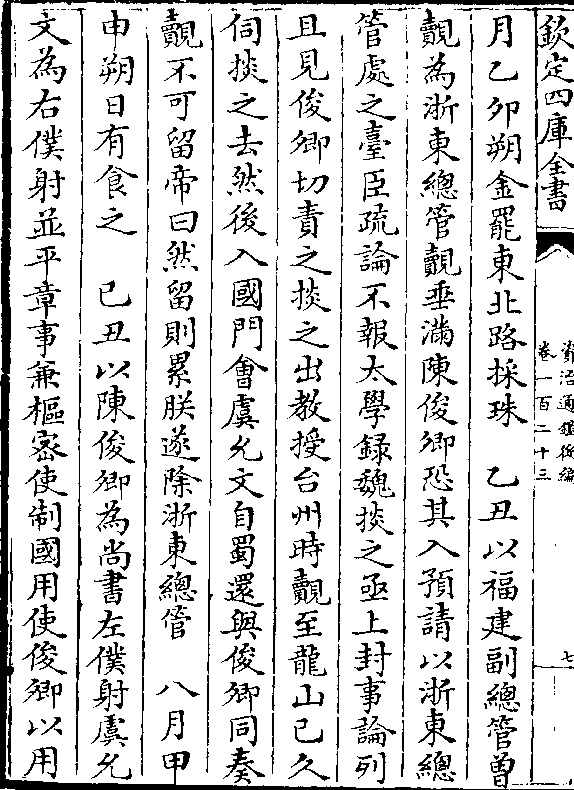 欽定四庫全書
資治通鑑後編
卷一百二十三
七
月乙卯朔金罷東北路採珠　乙丑以福建副總管曾
覿為浙東總管覿垂滿陳俊卿恐其入預請以浙東總
管處之臺臣疏論不報太學録魏掞之亟上封事論列
且見俊卿切責之掞之出教授台州時覿至龍山已久
伺掞之去然後入國門會虞允文自蜀還與俊卿同奏
覿不可留帝曰然留則累朕遂除浙東總管　八月甲
申朔日有食之　己丑以陳俊卿為尚書左僕射虞允
文為右僕射並平章事兼樞密使制國用使俊卿以用